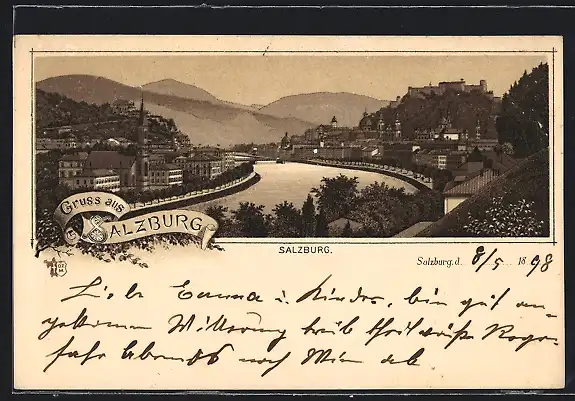 Gruss aus
SALZBURG
SALZBURG.
Salzburg, d. 8/5. 1898
Liebe Emma u. Kinder, bin gut an-
gekommen Witterung trüb theilweise Regen
fahre Abends noch Wien ab